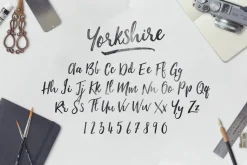 Yorkshire
Aa Bb Cc Dd Ee Ff Gg
Hh Ii Jj Kk Ll Mm Nn Oo Pp Qq
Rr Ss Tt Uu Vv Ww Xx Yy Zz
1 2 3 4 5 6 7 8 9 0